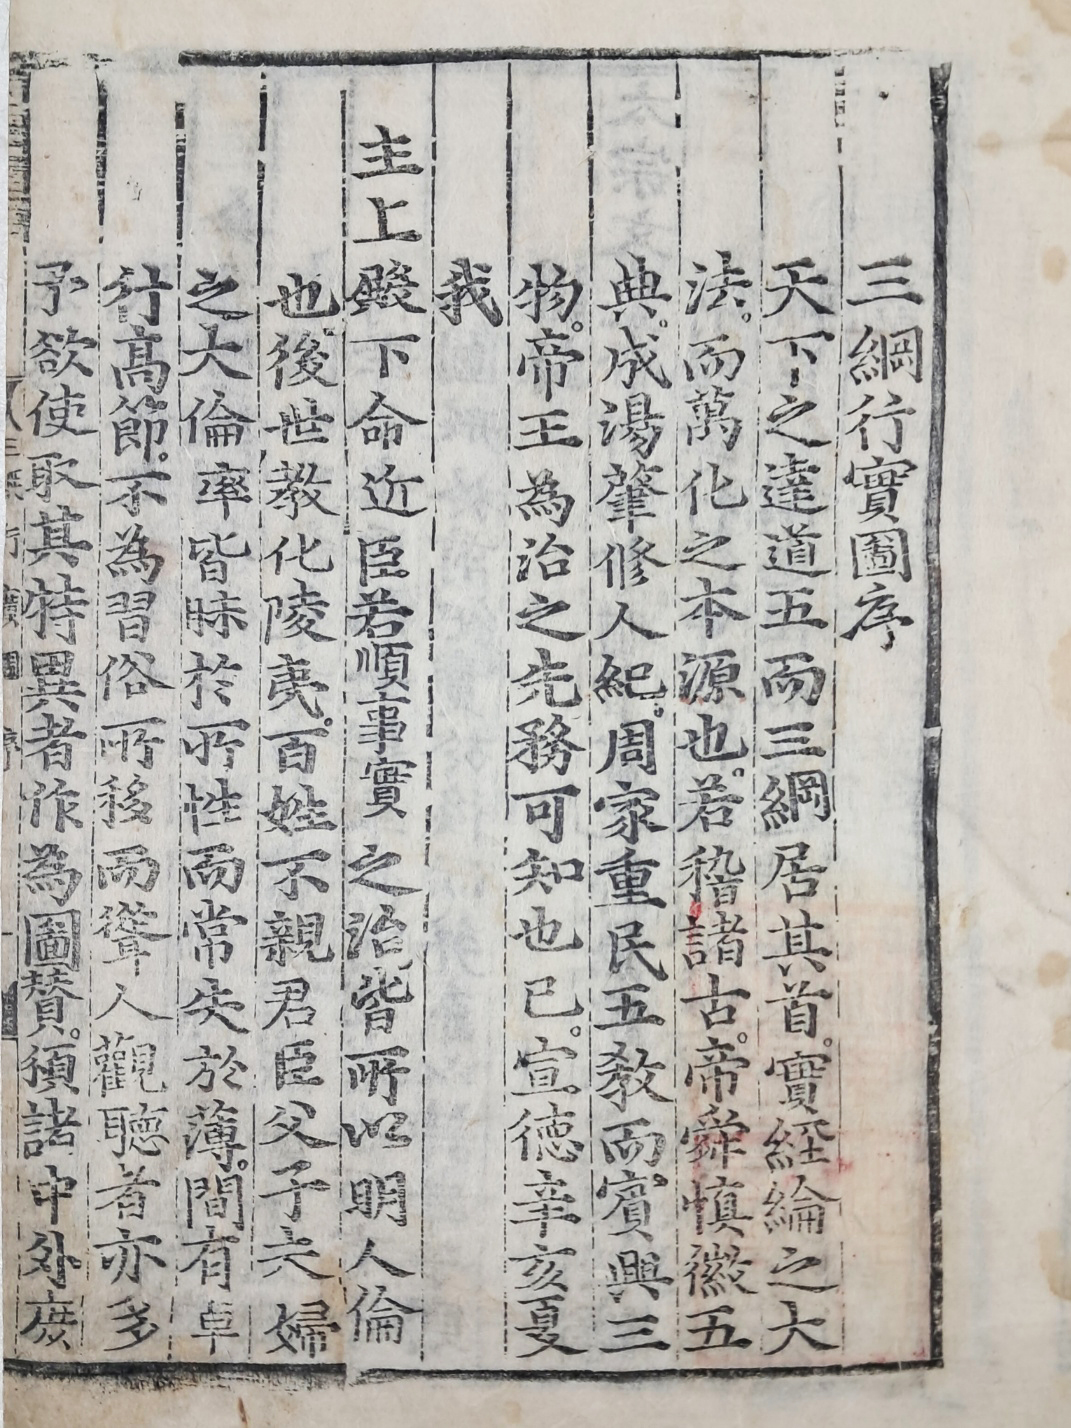 三綱行實圖序
天下之達道五而三綱居其首。實經綸之大
法。而萬化之本源也。若稽諸古。帝舜慎徽五
典。成湯肇修人紀。周家重民五教而賓興三
物。帝王為治之先務可知也已。宣德辛亥夏
我
主上殿下命近臣若順事實之治皆所以明人倫
也。後世教化陵夷。百姓不親君臣父子夫婦
之大倫率皆昧於所性而常失於薄。間有卓
行高節。不為習俗所移而聳人觀聽者亦多
予欲使取其特異者作為圖贊。須諸中外庶